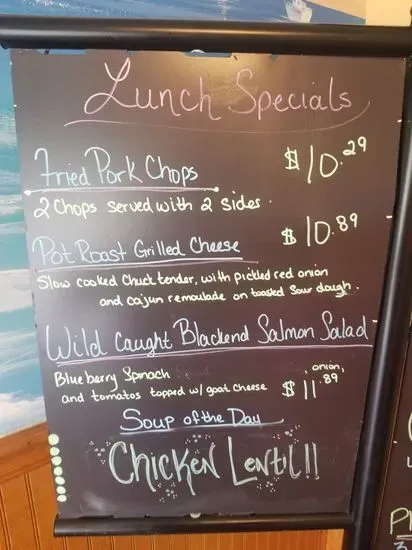 Lunch Specials
Fried Pork Chops $10.29
2 Chops served with 2 sides.
Pot Roast Grilled Cheese $10.89
Slow cooked Chuck tender, with pickled red onion
and cajun remoulade on toasted Sour dough.
Wild Caught Blackend Salmon Salad
Blueberry Spinach , onion,
and tomatos topped w/ goat cheese $11.89
Soup of the Day
Chicken Lentil!!